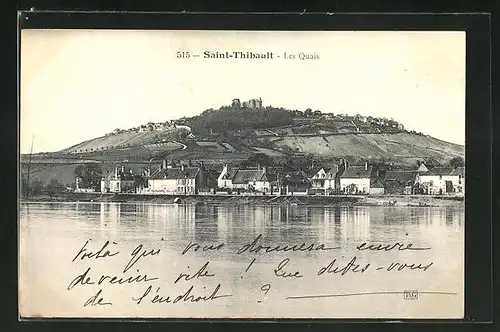 515 — Saint-Thibault - Les Quais
Voilà qui vous donnera envie
de devenir vite ! Que dites-vous
de l'endroit ?
B.G